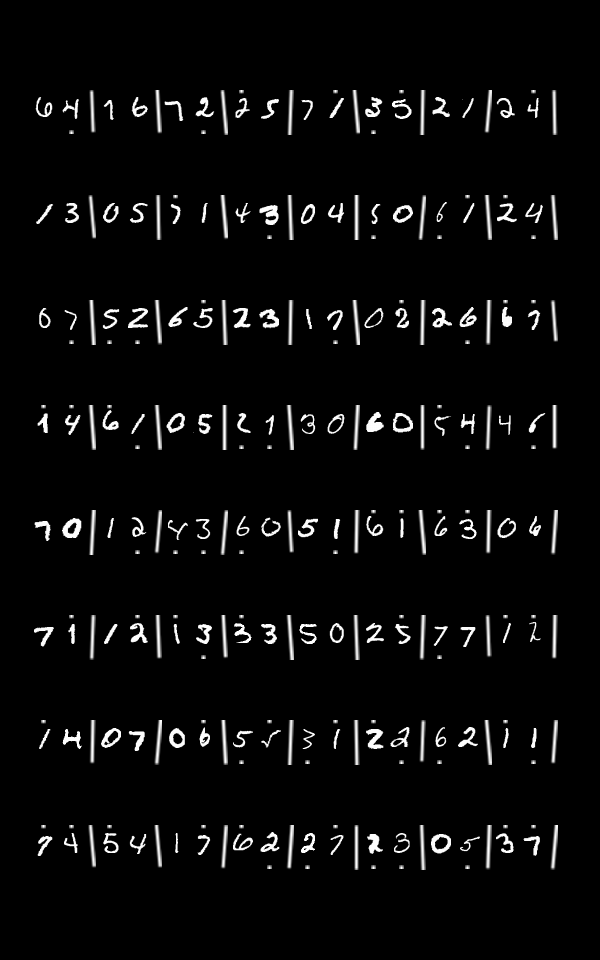 6 4̣ | 1 6 | 7 2̣ | 2̇ 5 | 7 1̇ | 3̣ 5̇ | 2 1 | 2 4̇ |
1 3 | 0 5 | 7̇ 1 | 4 3̣ | 0 4 | 5̣ 0 | 6̣ 1̇ | 2̇ 4̣ |
6 7̣ | 5̣ 2̣ | 6 5̇ | 2 3 | 1 7̣ | 0 2̇ | 2 6̣ | 6̇ 7̣ |
1̇ 4̇ | 6̇ 1̣ | 0 5 | 2̣ 1̣ | 3 0 | 6 0 | 5̇ 4̣ | 4 6̣ |
7 0 | 1 2̣ | 4̣ 3̣ | 6̣ 0 | 5 1̣ | 6̇ 1̇ | 6̇ 3̇ | 0 6̇ |
7 1̇ | 1 2̇ | 1̇ 3̣ | 3̇ 3 | 5 0 | 2 5̇ | 7̣ 7 | 1̇ 2̇ |
1̇ 4 | 0 7 | 0 6̇ | 5̣ 5̇ | 3̣ 1̇ | 2̇ 2̣ | 6̣ 2 | 1̇ 1̣ |
7̇ 4̇ | 5̇ 4 | 1 7̇ | 6 2̣ | 2̣ 7̇ | 2̣ 3̣ | 0 5̣ | 3̇ 7̇ |